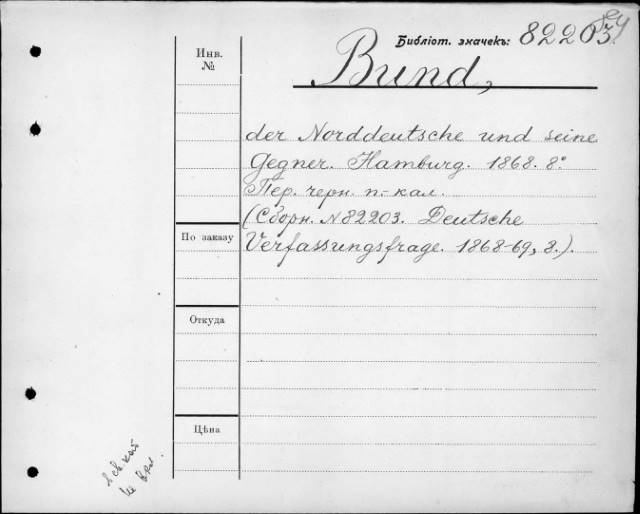 Библіот. значекъ: 82203
Инв.
№
Bund,
der Norddeutsche und seine
Gegner. Hamburg. 1868. 8°
Пер. черн. п.-кал.
(Сборн. №82203. Deutsche
По заказу
Verfassungsfrage. 1868-69, 8.).
Откуда
Цѣна